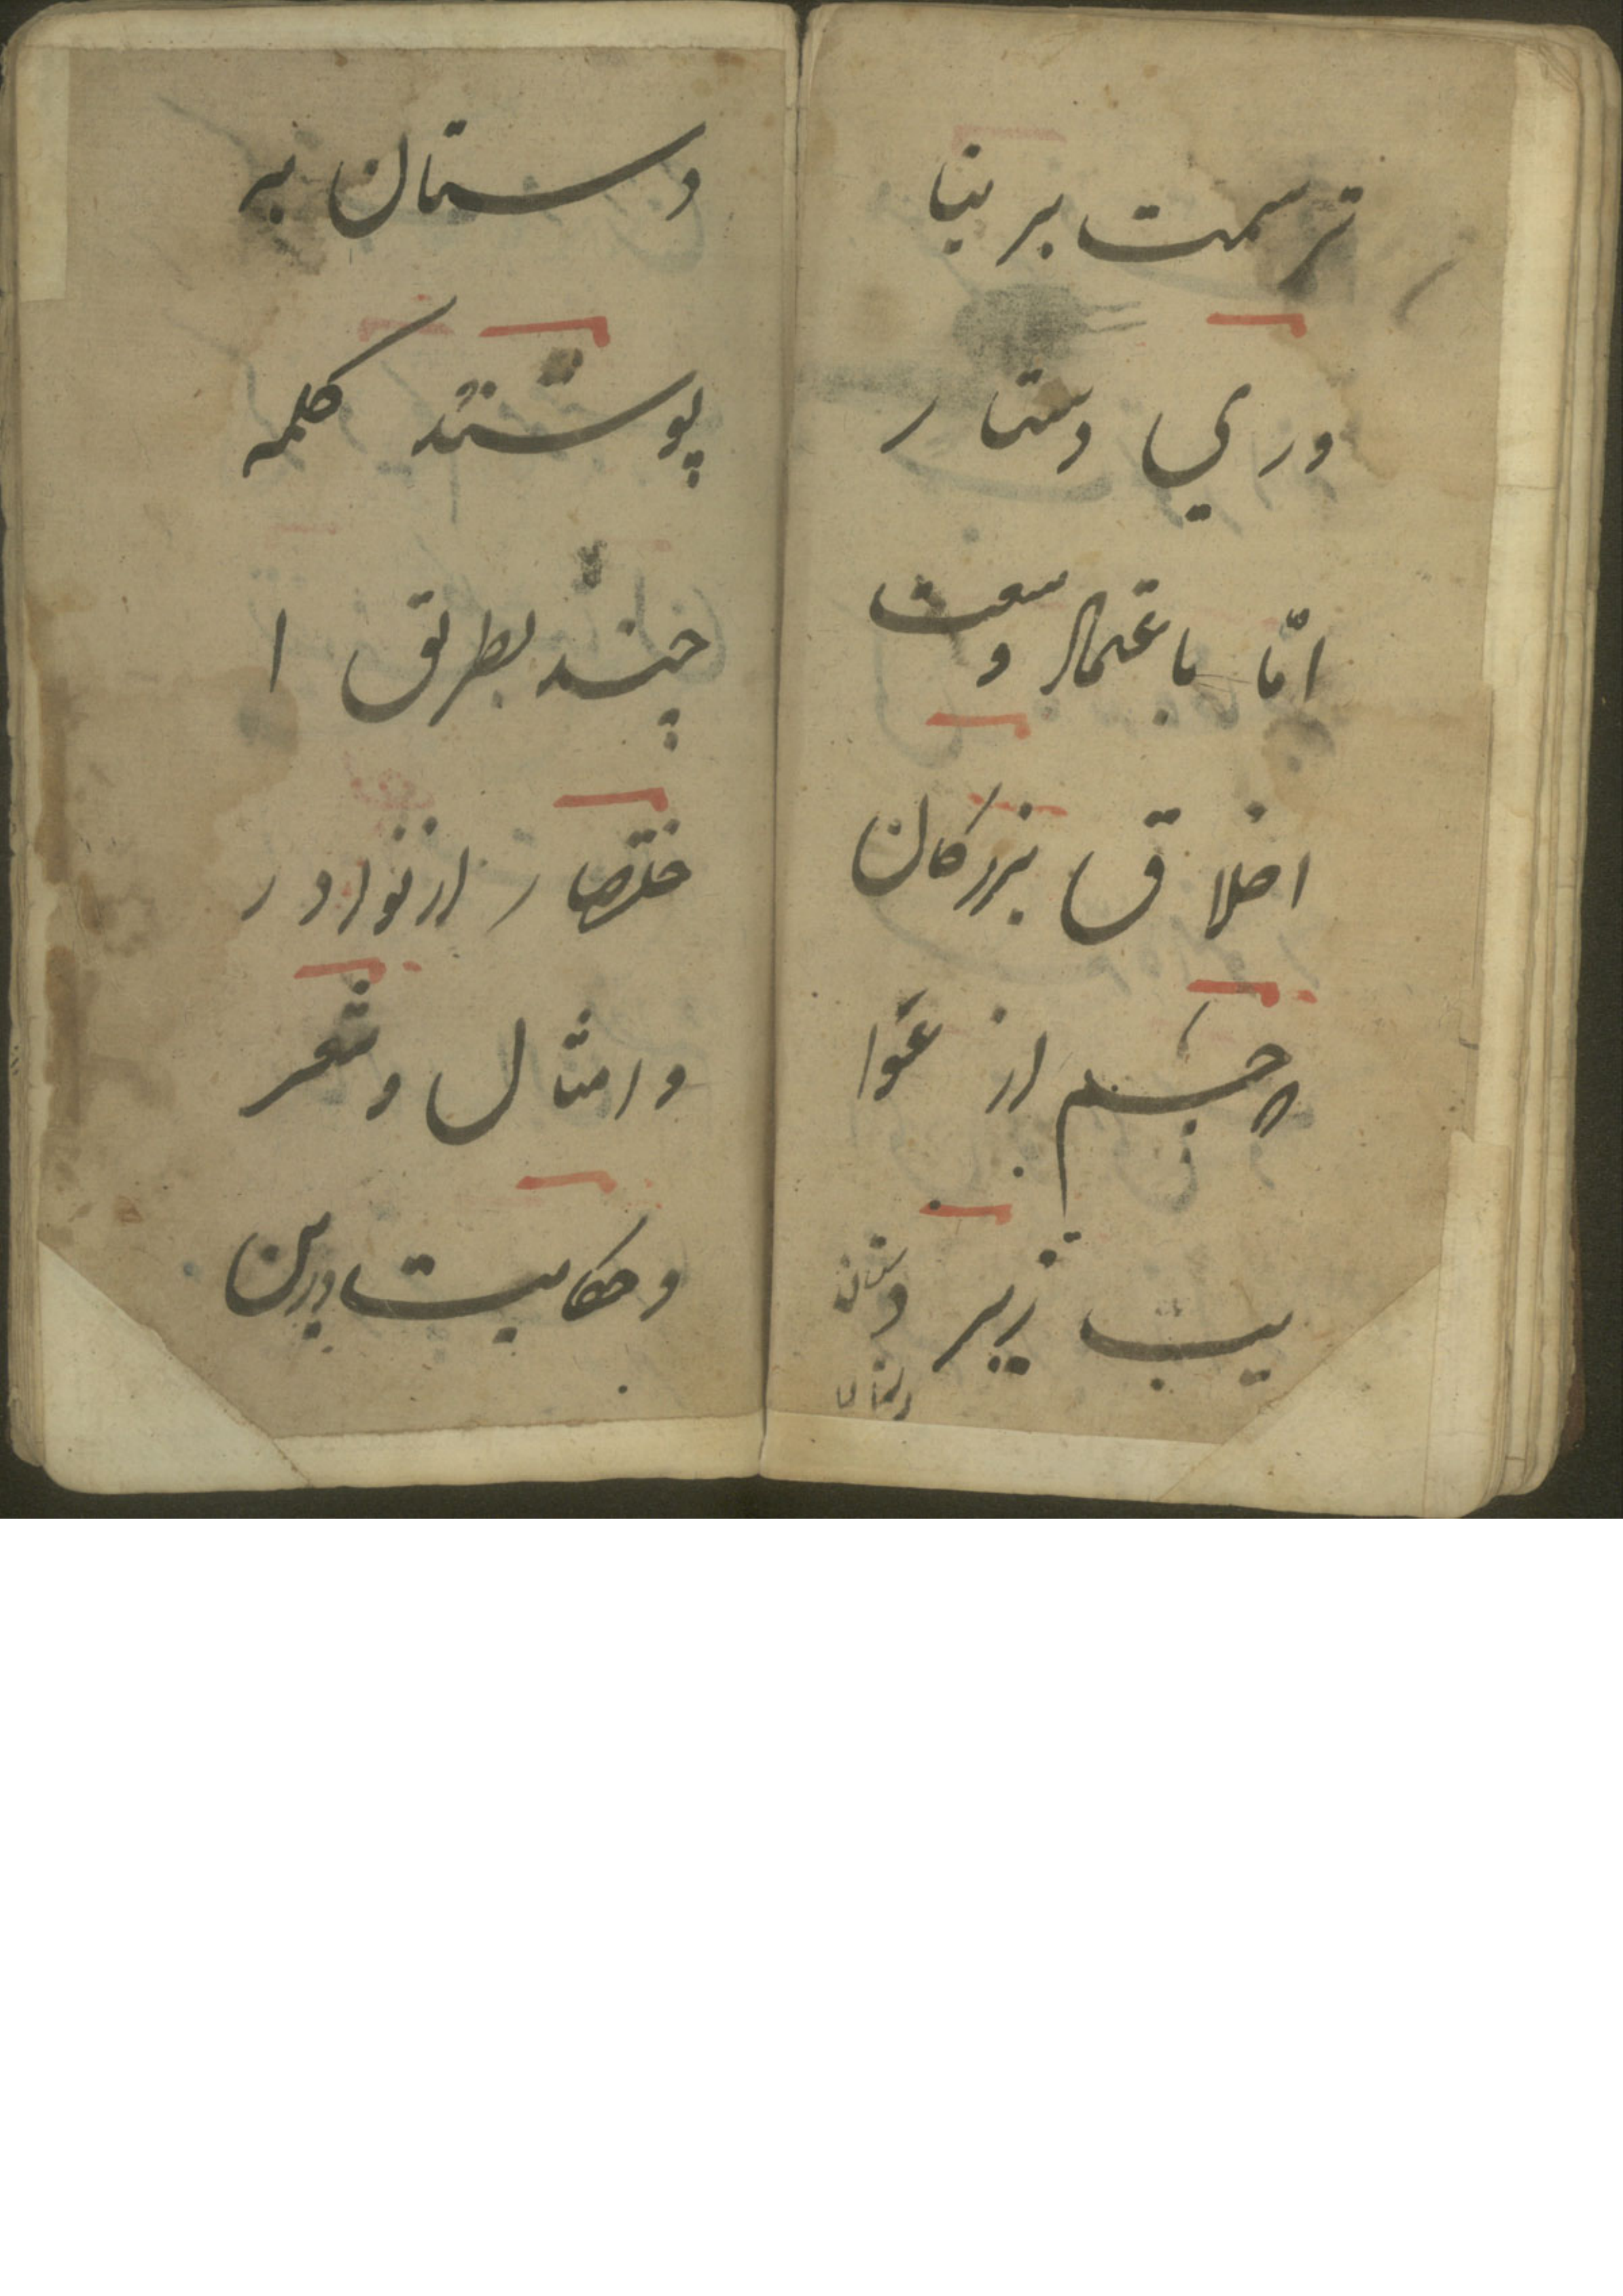 ترسمت بر نیا
وري وستار
امّا باعتماد وسعت
اخلاق بزرگان
چشم از عوا
یب زیر دستان
وستان بپو
پوشند کلمه
چند بطریق ا
ختصار از نوادر
و امثال و شعر
و حکایت درین